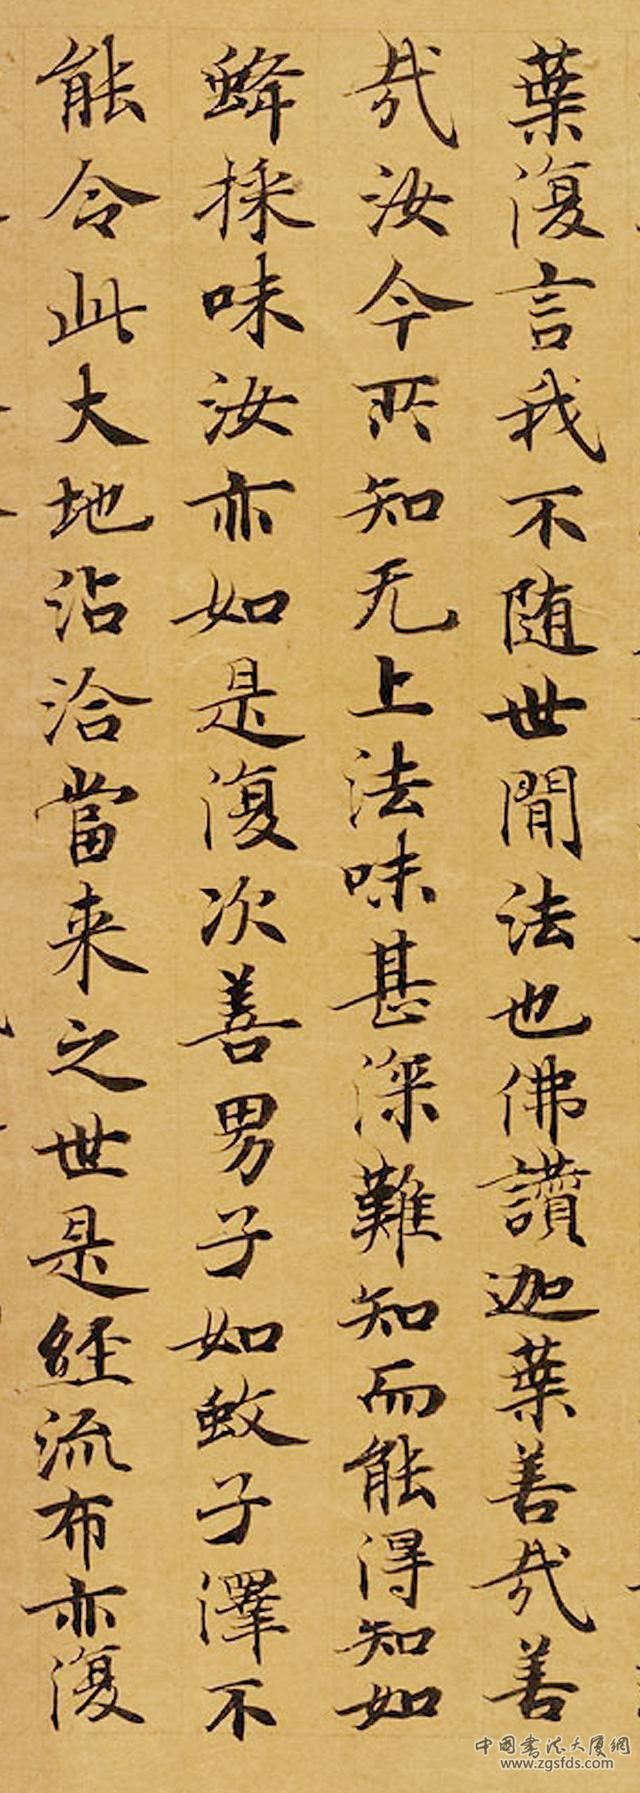 葉復言我不随世間法也佛讚迦葉善哉善
哉汝今所知无上法味甚深難知而能得知如
蜂採味汝亦如是復次善男子如蚊子澤不
能令此大地沾洽當来之世是經流布亦復
中国书法大厦網
www.zgsfds.com